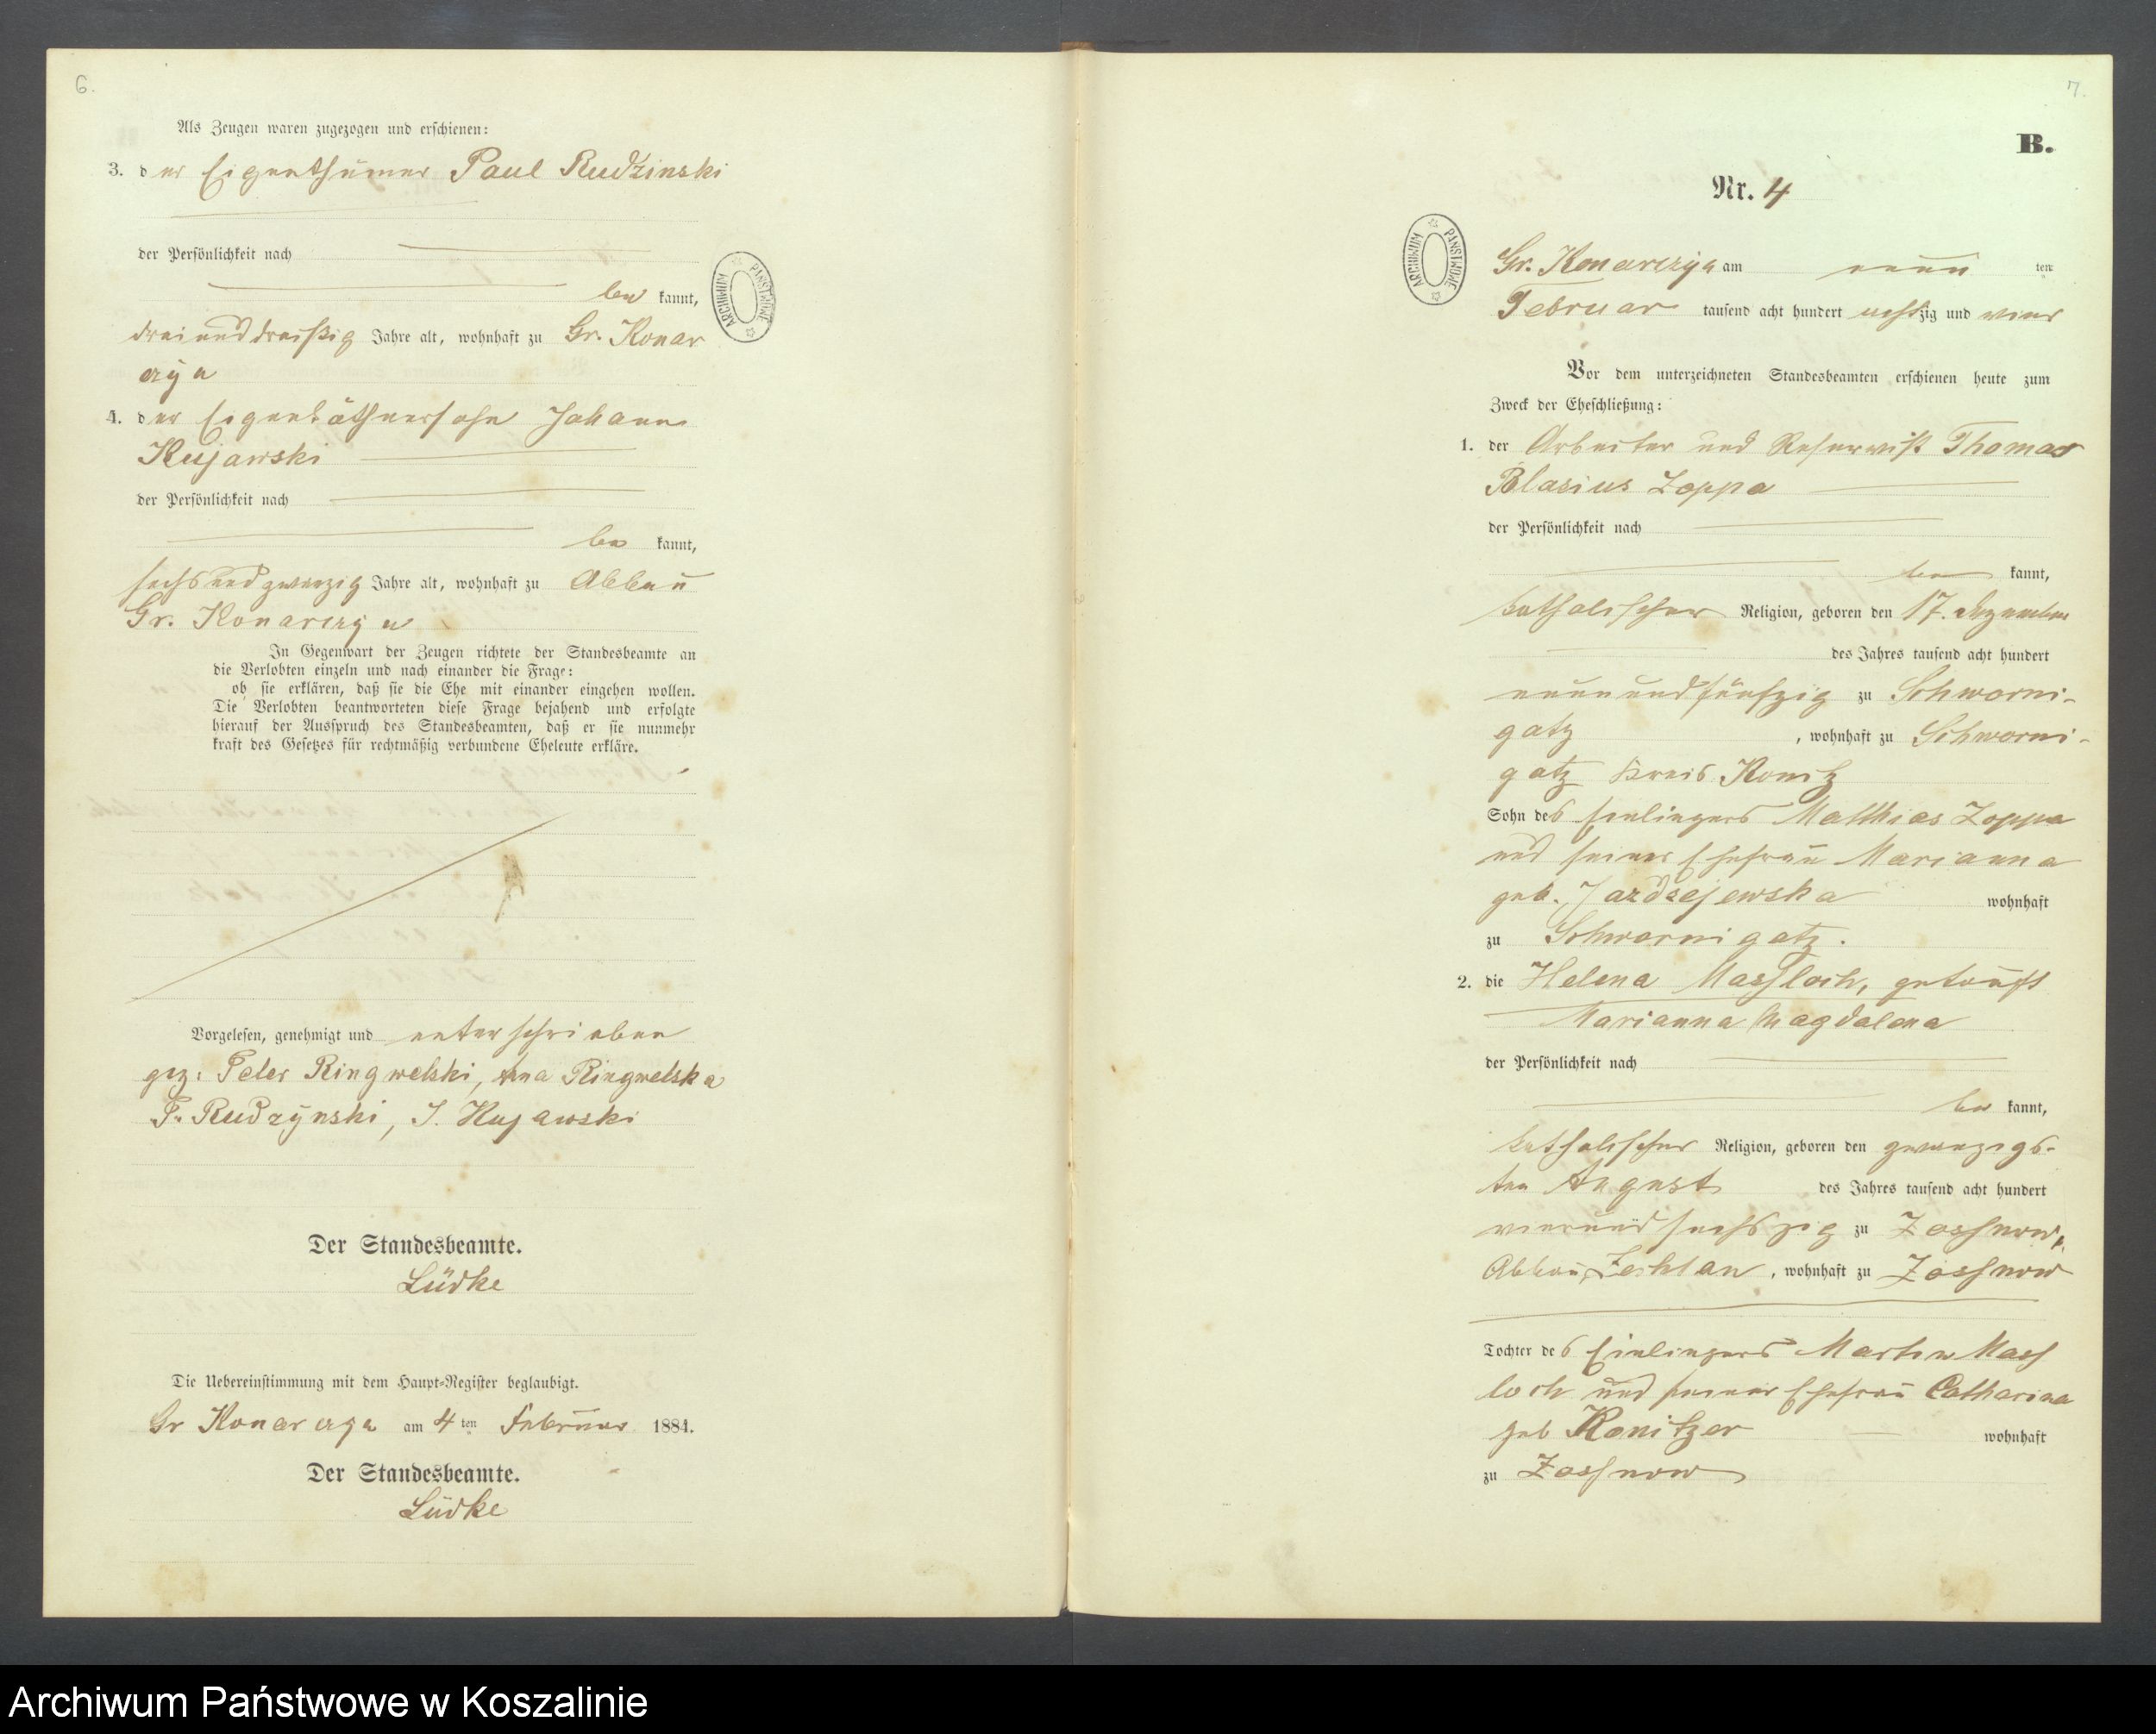 6.
Als Zeugen waren zugezogen und erschienen:
3. der Eigenthümer Paul Rudzinski
der Persönlichkeit nach
be kannt,
dreiunddreißig Jahre alt, wohnhaft zu Gr. Konar
czyn
4. der Eigenkäthnersohn Johann
Kujawski
der Persönlichkeit nach
be kannt,
sechsundzwanzig Jahre alt, wohnhaft zu Abbau
Gr. Konarczyn
In Gegenwart der Zeugen richtete der Standesbeamte an
die Verlobten einzeln und nach einander die Frage:
ob sie erklären, daß sie die Ehe mit einander eingehen wollen.
Die Verlobten beantworteten diese Frage bejahend und erfolgte
hierauf der Ausspruch des Standesbeamten, daß er sie nunmehr
kraft des Gesetzes für rechtmäßig verbundene Eheleute erkläre.
Vorgelesen, genehmigt und unterschrieben
gez: Peter Ringwelski, Ana Ringwelska
P. Rudzynski, J. Kujawski
Der Standesbeamte.
Lüdke
Die Uebereinstimmung mit dem Haupt-Register beglaubigt.
Gr Konarczyn am 4 ten Februar 1884.
Der Standesbeamte.
Lüdke
ARCHIWUM PAŃSTWOWE
7.
B.
Nr. 4
ARCHIWUM PAŃSTWOWE
Gr. Konarczyn am neun ten
Februar tausend acht hundert achtzig und vier
Vor dem unterzeichneten Standesbeamten erschienen heute zum
Zweck der Eheschließung:
1. der Arbeiter und Reservist Thomas
Blasius Zoppa
der Persönlichkeit nach
be kannt,
katholischer Religion, geboren den 17. Dezember
des Jahres tausend acht hundert
neunundfünfzig zu Schworni-
gatz , wohnhaft zu Schworni-
gatz Kreis Konitz
Sohn des Einliegers Matthias Zoppa
und seiner Ehefrau Marianna
geb. Jazdzejewska wohnhaft
zu Schwornigatz.
2. die Helena Massloch, getauft
Marianna Magdalena
der Persönlichkeit nach
be kannt,
katholischer Religion, geboren den zwanzigs-
ten August des Jahres tausend acht hundert
vierundsechszig zu Zossnow,
Abbau, wohnhaft zu Zossnow
Tochter des Einliegers Martin Mass
loch und seiner Ehefrau Catharina
geb Konitzer wohnhaft
zu Zossnow
Archiwum Państwowe w Koszalinie